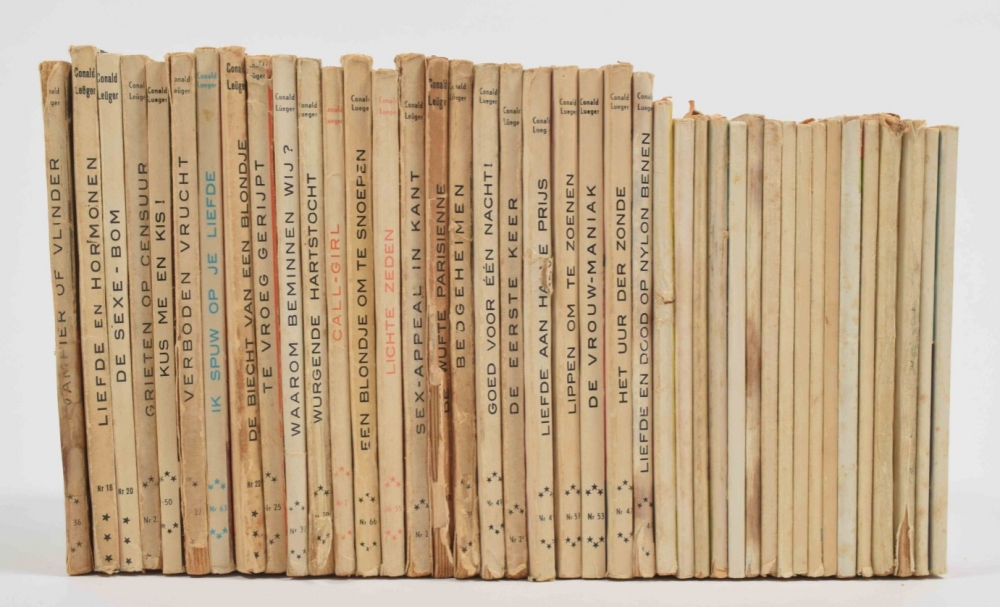 VAMPIER OF VLINDER
36
Conald
Leüger
LIEFDE EN HORMONEN
Nr 18
Conald
Leüger
DE SEXE-BOM
Nr 20
GRIETEN OP CENSUUR
Conald
Lueger
KUS ME EN KIS!
50
VERBODEN VRUCHT
Conald
Lueger
IK SPUW OP JE LIEFDE
Nr 63
Conald
Leüger
DE BIECHT VAN EEN BLONDJE
Nr 23
TE VROEG GERIJPT
Nr 25
Conald
Lueger
WAAROM BEMINNEN WIJ?
Conald
Lueger
WURGENDE HARTSTOCHT
CALL-GIRL
Conald
Lueger
EEN BLONDJE OM TE SNOEPEN
Nr 66
LICHTE ZEDEN
Conald
Leüger
SEX-APPEAL IN KANT
Conald
Leüger
WUFTE PARISIENNE
Conald
Leüger
BEDGEHEIMEN
Conald
Lueger
GOED VOOR ÉÉN NACHT!
Conald
Lueger
DE EERSTE KEER
LIEFDE AAN PRIJS
Conald
Lueger
LIPPEN OM TE ZOENEN
Conald
Lueger
DE VROUW-MANIAK
Nr 53
Conald
Lueger
HET UUR DER ZONDE
Conald
Lueger
LIEFDE EN DOOD OP NYLON BENEN